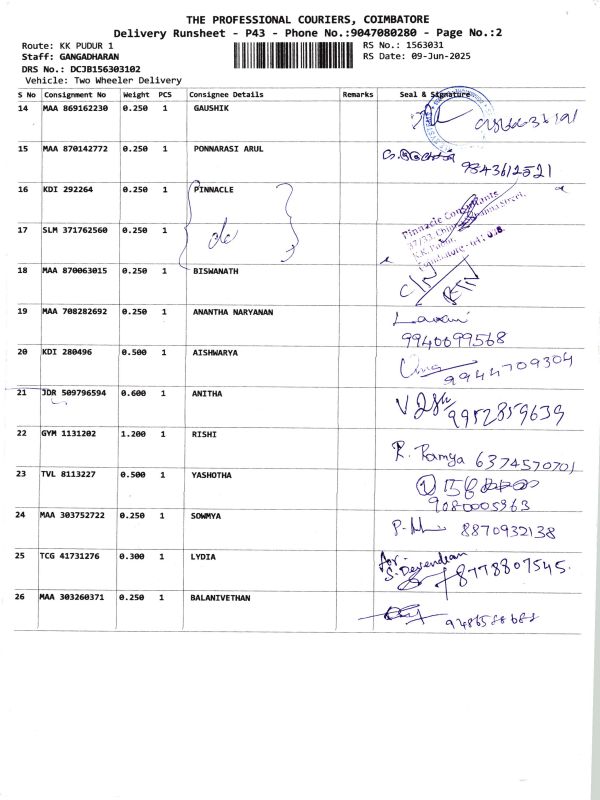 THE PROFESSIONAL COURIERS, COIMBATORE
Delivery Runsheet - P43 - Phone No.:9047080280 - Page No.:2
Route: KK PUDUR 1 RS No.: 1563031
Staff: GANGADHARAN RS Date: 09-Jun-2025
DRS No.: DCJB156303102
Vehicle: Two Wheeler Delivery
S No Consignment No Weight PCS Consignee Details Remarks Seal & Signature
14 MAA 869162230 0.250 1 GAUSHIK
15 MAA 870142772 0.250 1 PONNARASI ARUL
9843612521
16 KDI 292264 0.250 1 PINNACLE
Pinnacle Consultants
17 SLM 371762560 0.250 1
18 MAA 870063015 0.250 1 BISWANATH
RTN
19 MAA 708282692 0.250 1 ANANTHA NARYANAN
9940099568
20 KDI 280496 0.500 1 AISHWARYA
9944709304
21 JDR 509796594 0.600 1 ANITHA
9952859639
22 GYM 1131202 1.200 1 RISHI
R. Ramya 6374570701
23 TVL 8113227 0.500 1 YASHOTHA
9080005963
24 MAA 303752722 0.250 1 SOWMYA
8870932138
25 TCG 41731276 0.300 1 LYDIA
S. Devendran
8778807545.
26 MAA 303260371 0.250 1 BALANIVETHAN